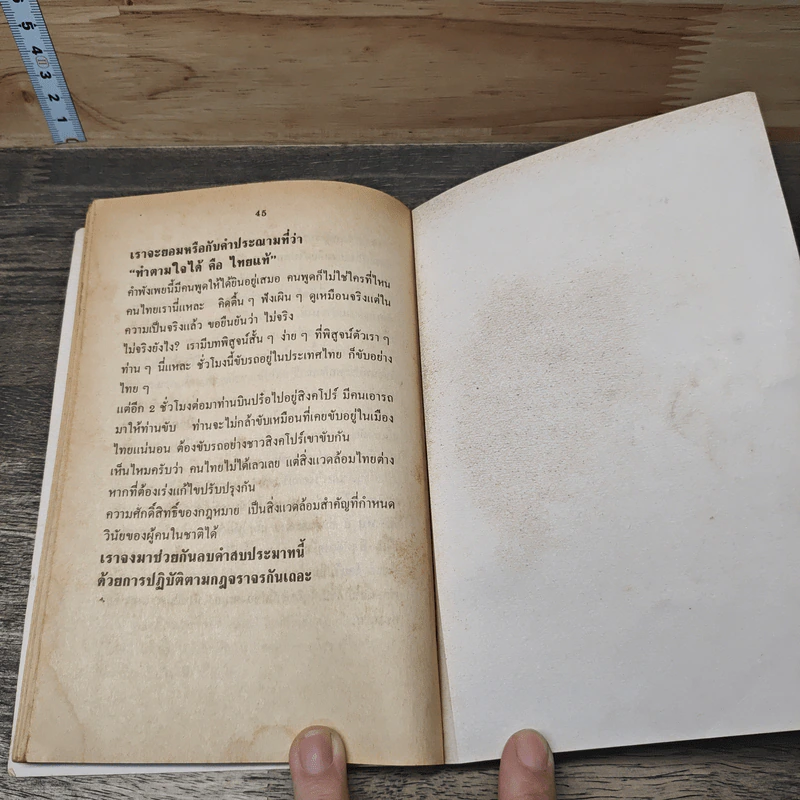 6
5
4
3
2
1
45
เราจะยอมหรือกับคำประณามที่ว่า
"ทำตามใจได้ คือ ไทยแท้"
คำพังเพยนี้มีคนพูดให้ได้ยินอยู่เสมอ คนพูดก็ไม่ใช่ใครที่ไหน
คนไทยเรานี่แหละ คิดตื้น ๆ ฟังเผิน ๆ ดูเหมือนจริงแต่ใน
ความเป็นจริงแล้ว ขอยืนยันว่า ไม่จริง
ไม่จริงยังไง? เรามีบทพิสูจน์สั้น ๆ ง่าย ๆ ที่พิสูจน์ตัวเรา ๆ
ท่าน ๆ นี่แหละ ชั่วโมงนี้ขับรถอยู่ในประเทศไทย ก็ขับอย่าง
ไทย ๆ
แต่อีก 2 ชั่วโมงต่อมาท่านบินปร๋อไปอยู่สิงคโปร์ มีคนเอารถ
มาให้ท่านขับ ท่านจะไม่กล้าขับเหมือนที่เคยขับอยู่ในเมือง
ไทยแน่นอน ต้องขับรถอย่างชาวสิงคโปร์เขาขับกัน
เห็นไหมครับว่า คนไทยไม่ได้เลวเลย แต่สิ่งแวดล้อมไทยต่าง
หากที่ต้องเร่งแก้ไขปรับปรุงกัน
ความศักดิ์สิทธิ์ของกฎหมาย เป็นสิ่งแวดล้อมสำคัญที่กำหนด
วินัยของผู้คนในชาติได้
เราจงมาช่วยกันลบคำสบประมาทนี้
ด้วยการปฏิบัติตามกฎจราจรกันเถอะ